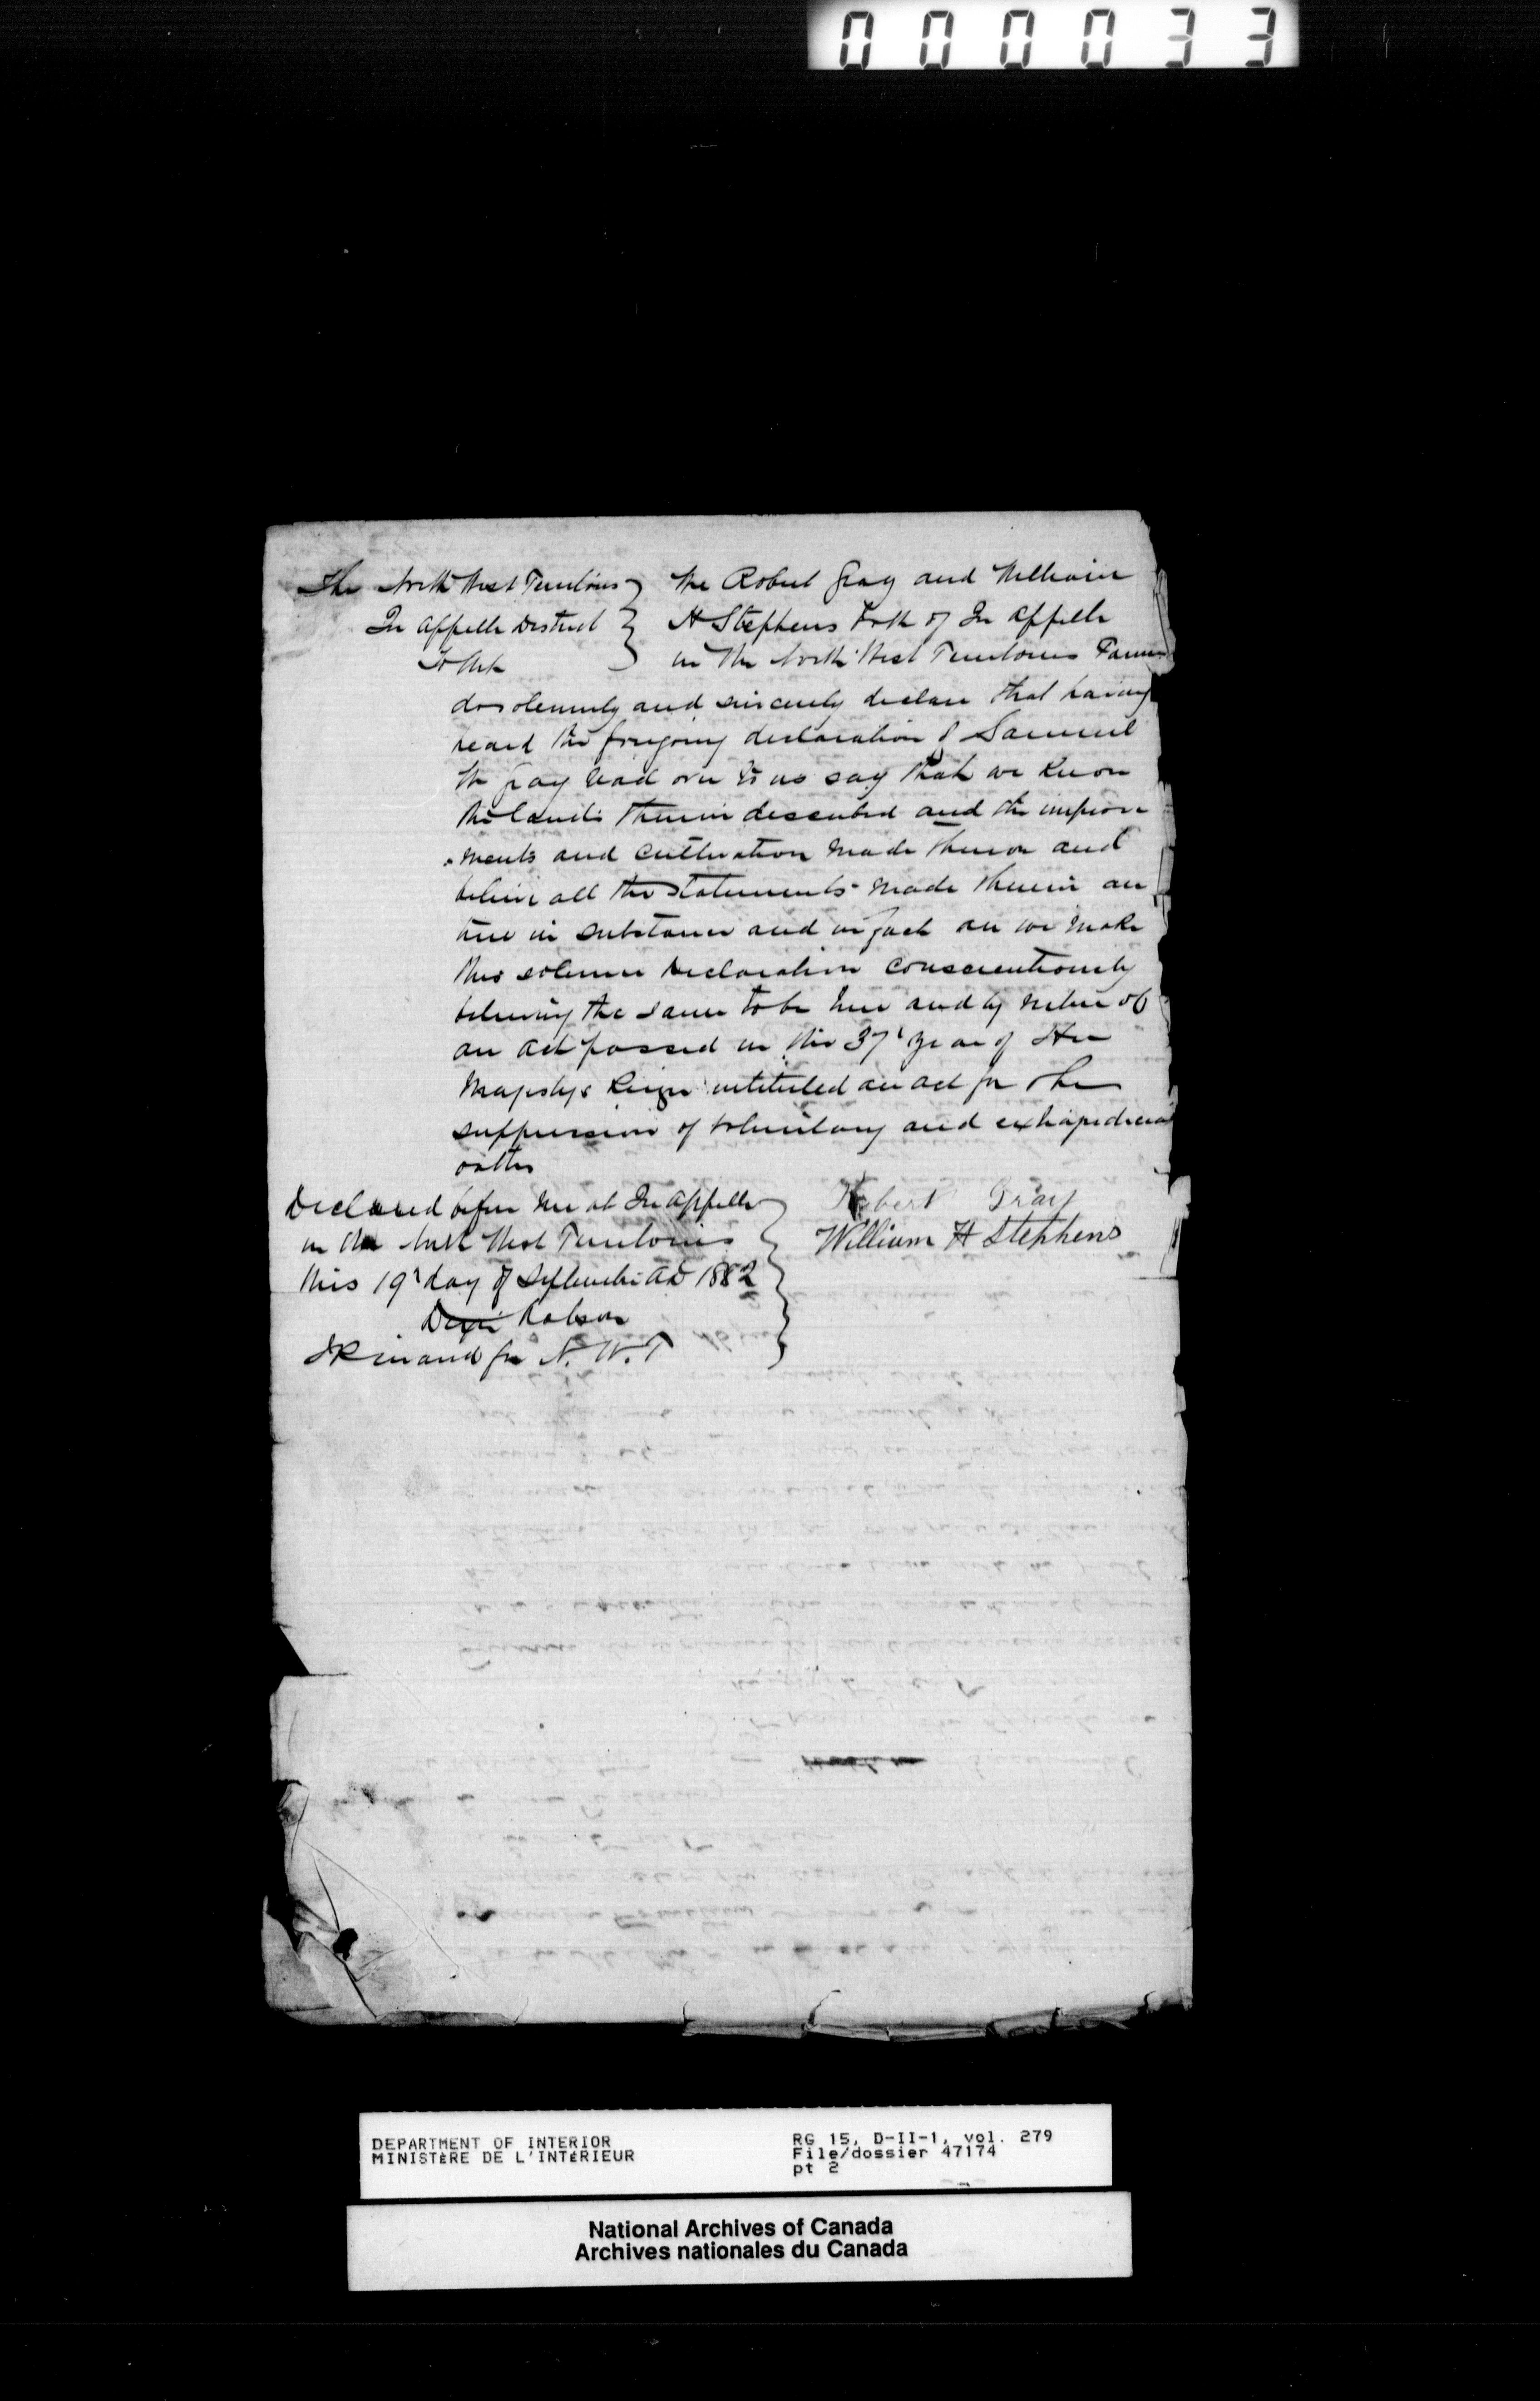 000033
The North West Territories } We Robert Gray and William
Qu Appelle District } H Stephens both of Qu Appelle
To Wit } in the North West Territories Farmers
do solemnly and sincerely declare that having
heard the foregoing declaration of Samuel
Gray read over to us say that we know
the lands therein described and the improve
-ments and cultivation made thereon and
believe all the statements made therein are
true in substance and in fact an we make
this solemn Declaration conscientiously
believing the same to be true and by virtue of
an act passed in the 37' year of Her
Majestys Reign intituled an act for the
suppression of voluntary and extrajudicial
oaths
Declared before me at Qu Appelle } Robert Gray
in the North West Territories } William H Stephens
this 19' day of September AD 1882
Robson
JP in and for N. W. T
DEPARTMENT OF INTERIOR
MINISTÈRE DE L'INTÉRIEUR
RG 15, D-II-1, vol. 279
File/dossier 47174
pt 2
National Archives of Canada
Archives nationales du Canada